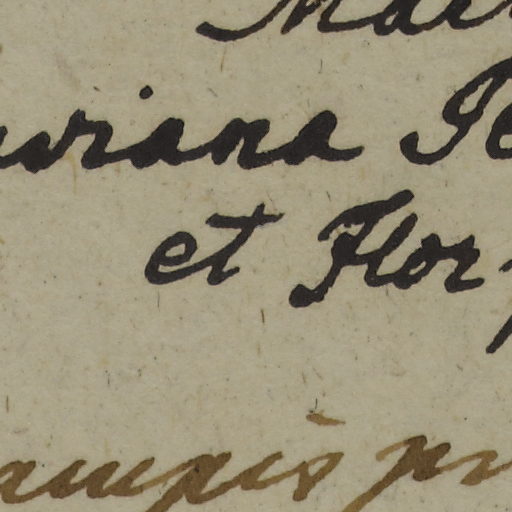 Mar
uviana Te
et Flor
ampis pr